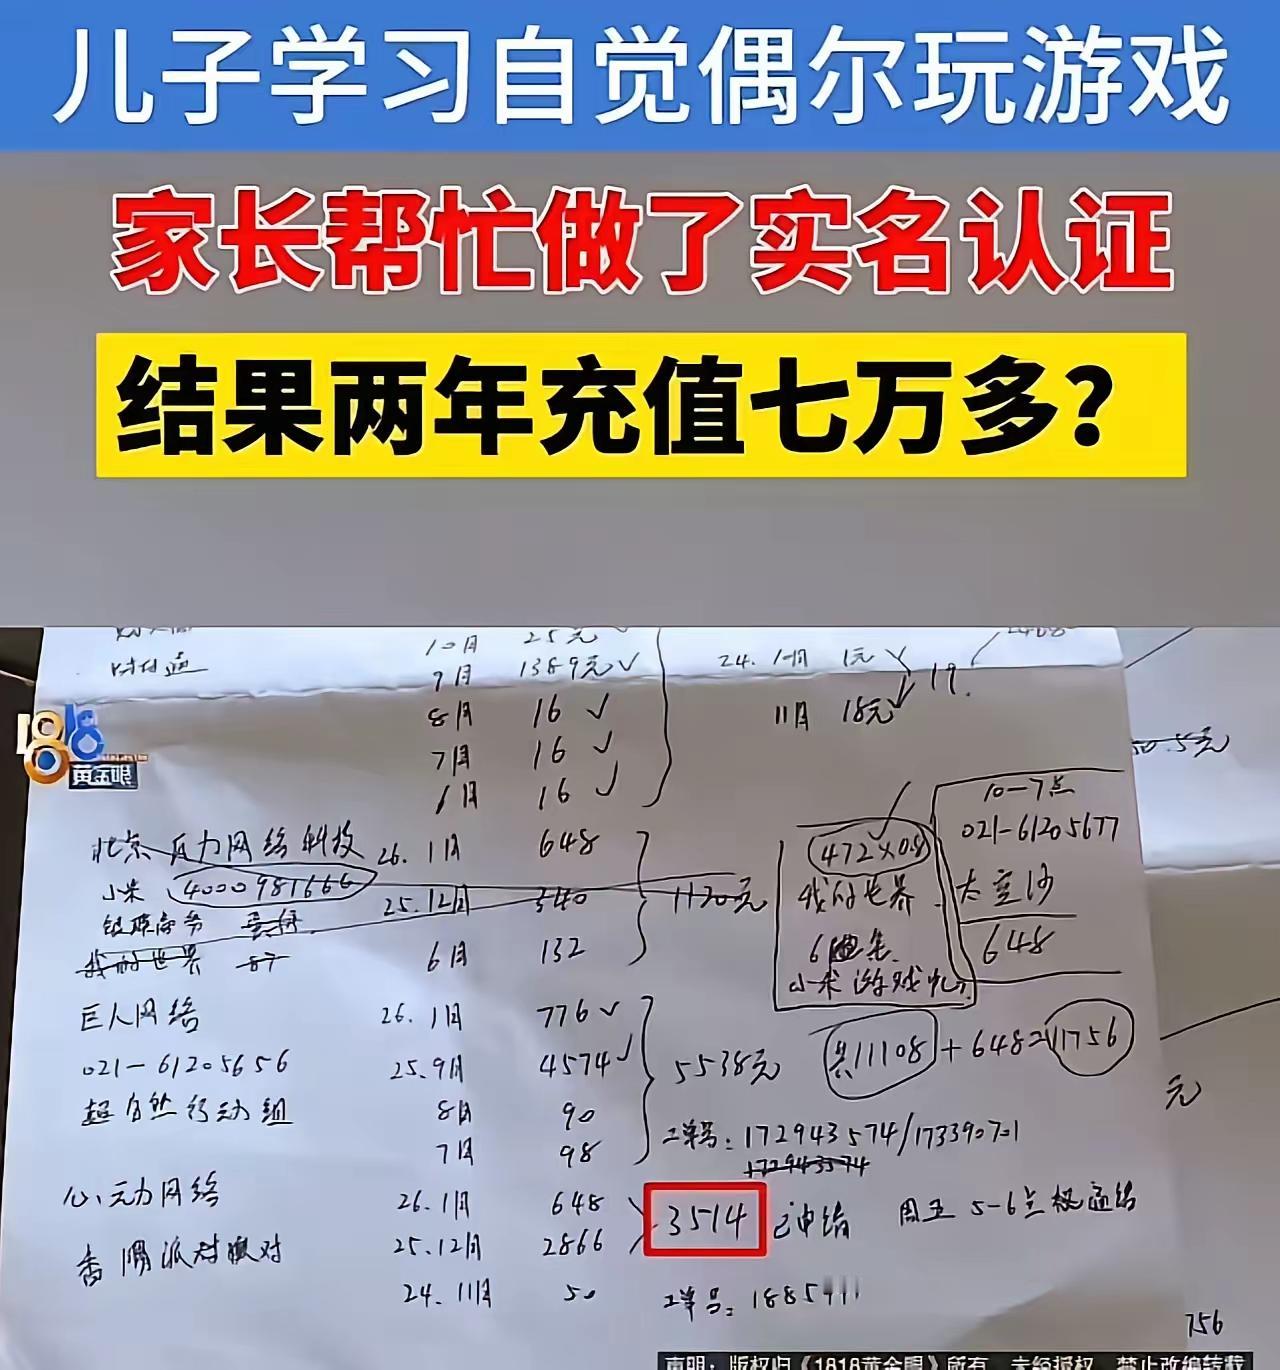 儿子学习自觉偶尔玩游戏
家长帮忙做了实名认证
结果两年充值七万多？
10月 25元
财付通 9月 1389元 24. 1月 1元 19.
8月 16 11月 18元
7月 16
6月 16
50.5元
1818
黄金眼
北京 网络科技 26. 1月 648
小米 4000981666 25.12月 340 1120元
银联商务
我的世界 87 6月 132
472×0.8
我的世界
小米游戏
10-7点
021-61205677
太空沙
648
巨人网络 26. 1月 776
021-61205656 25.9月 4574 5538元
超自然行动组 8月 90
7月 98
共11108+648=11756
元
工单号：172943574/173390701
172943574
心动网络 26.1月 648 3514 已申请 周五 5-6点
香肠派对 25.12月 2866
24.11月 50 工单号：
756
声明：版权归《1818黄金眼》所有，未经授权，禁止改编转载